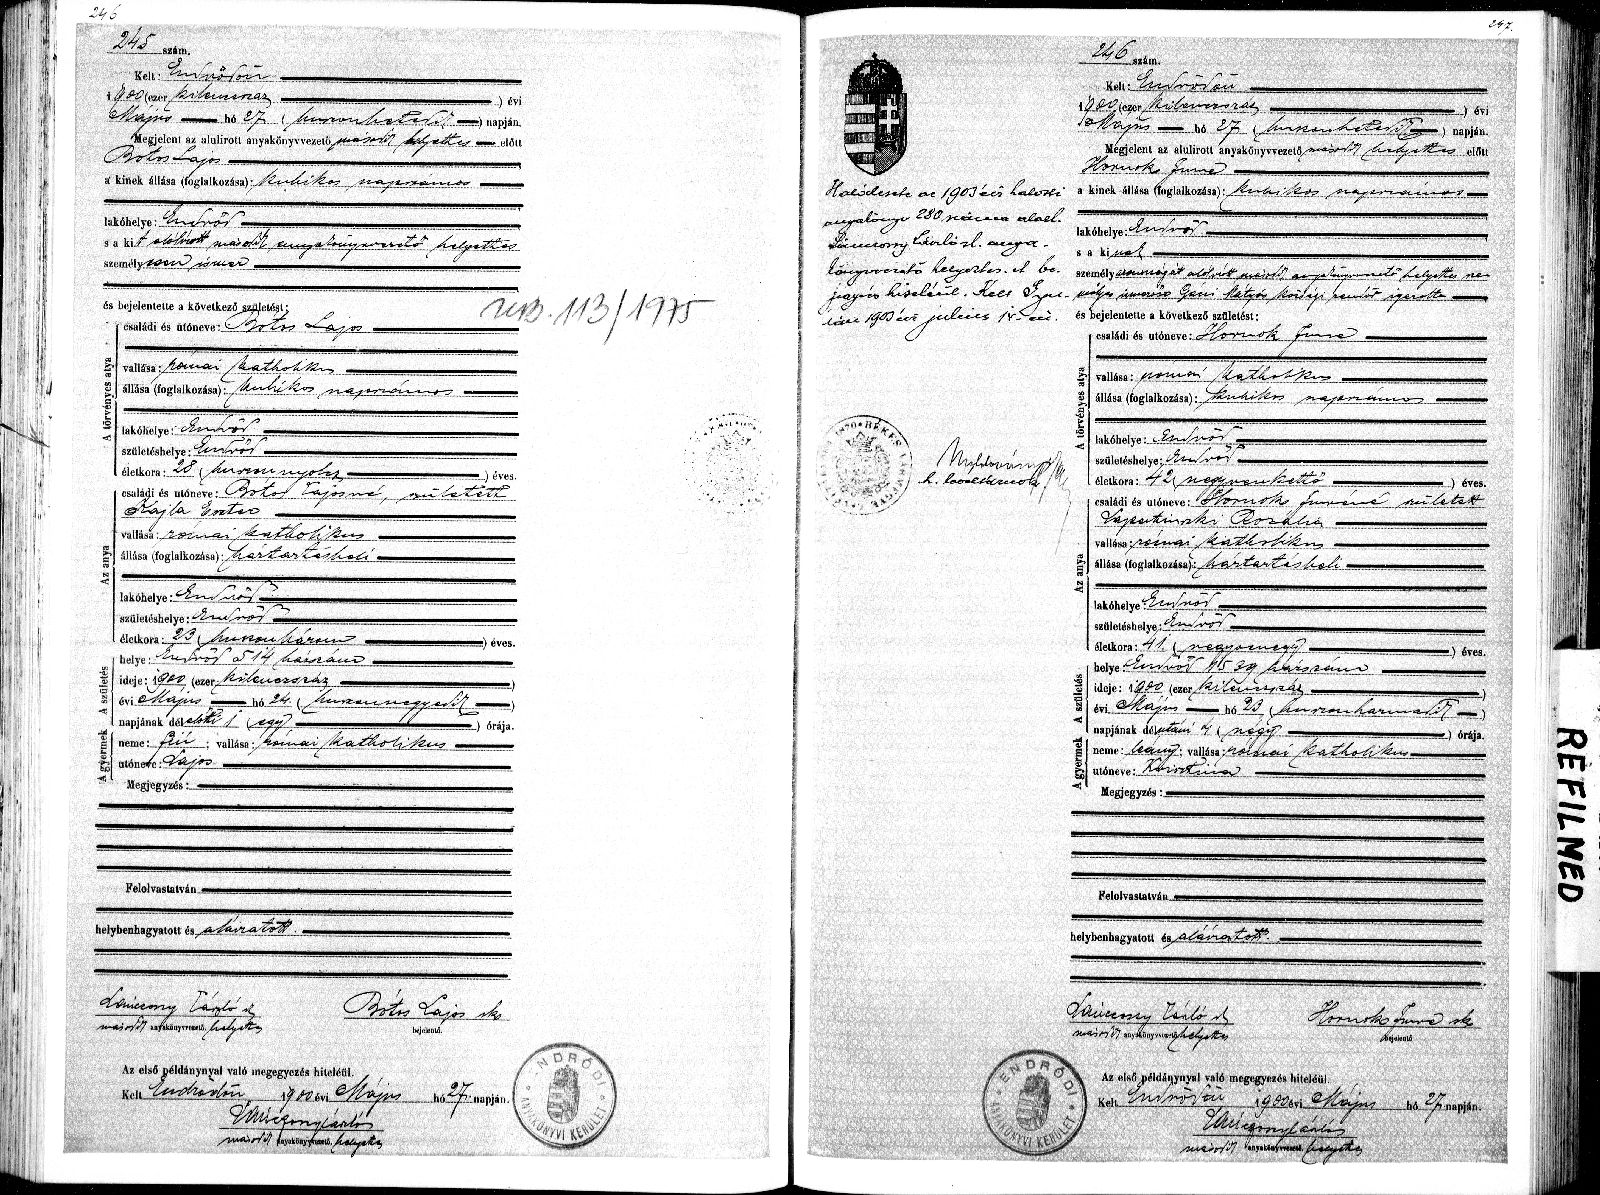 246
245 szám.
Kelt: Endrődön
1900 (ezer kilenczszáz ) évi
Május hó 27 (huszonhetedik) napján.
Megjelent az alulirott anyakönyvvezető másodh helyettes előtt
Botos Lajos
a kinek állása (foglalkozása): kubikos napszámos
lakóhelye: Endrőd
s a kit alólirott másodh anyakönyvvezető helyettes
személyesen ismer
és bejelentette a következő születést:
A törvényes atya
családi és utóneve: Botos Lajos
vallása: római katholikus
állása (foglalkozása): kubikos napszámos
lakóhelye: Endrőd
születéshelye: Endrőd
életkora: 28 (huszonnyolcz ) éves.
Az anya
családi és utóneve: Botos Lajosné, született
Kajla Eszter
vallása: római katholikus
állása (foglalkozása): háztartásbeli
lakóhelye: Endrőd
születéshelye: Endrőd
életkora: 23 (huszonhárom ) éves.
A születés
helye: Endrőd 514 házszám
ideje: 1900 (ezer kilenczszáz )
évi Május hó 24. (huszonnegyedik )
napjának délelőtti 1 (egy ) órája.
A gyermek
neme: fiú; vallása: római katholikus
utóneve: Lajos
Megjegyzés:
Felolvastatván
helybenhagyatott és aláiratott.
másodh anyakönyvvezető. helyettes
Botos Lajos sk
bejelentő.
Az első példánynyal való megegyezés hiteléül.
Kelt Endrődön 1900 évi Május hó 27. napján.
másodh anyakönyvvezető. helyettes
ENDRŐDI
ANYAKÖNYVI KERÜLET
113/1975
247.
Halálesete az 1903 évi halotti
anyakönyv 280 száma alatt.
anya-
könyvvezető helyettes. A be-
jegyzés hiteléül. Kelt
1903 évi julius 14-én.
BÉKÉS
246 szám.
Kelt: Endrődön
1900 (ezer kilenczszáz ) évi
Május hó 27 (huszonhetedik ) napján.
Megjelent az alulirott anyakönyvvezető másodh helyettes előtt
Hornok Imre
a kinek állása (foglalkozása): kubikos napszámos
lakóhelye: Endrőd
s a kinek
személyazonosságát alólirott másodh anyakönyvvezető helyettes sze-
mélyes ismerőse Mátyás községi rendőr igazolta
és bejelentette a következő születést:
A törvényes atya
családi és utóneve: Hornok Imre
vallása: római katholikus
állása (foglalkozása): kubikos napszámos
lakóhelye: Endrőd
születéshelye: Endrőd
életkora: 42 (negyvenkettő ) éves.
Az anya
családi és utóneve: Hornok Imréné született
Rozália
vallása: római katholikus
állása (foglalkozása): háztartásbeli
lakóhelye: Endrőd
születéshelye: Endrőd
életkora: 41. (negyvenegy ) éves.
A születés
helye: Endrőd 1539 házszám
ideje: 1900 (ezer kilenczszáz )
évi Május hó 23 (huszonharmadik )
napjának délutáni 4 (négy ) órája.
A gyermek
neme: leány; vallása: római katholikus
utóneve: Krisztina
Megjegyzés:
Felolvastatván
helybenhagyatott és aláiratott.
másodh anyakönyvvezető helyettes
Hornok Imre sk
bejelentő
Az első példánynyal való megegyezés hiteléül.
Kelt Endrődön 1900 évi Május hó 27 napján.
másodh anyakönyvvezető. helyettes
ENDRŐDI
ANYAKÖNYVI KERÜLET
REFILMED